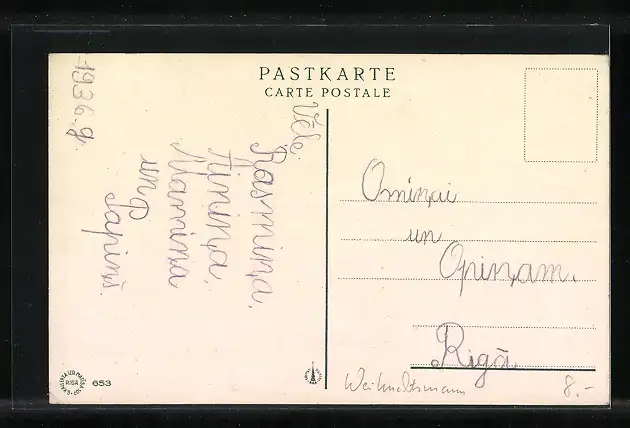 PASTKARTE
CARTE POSTALE
1936.g.
Vēl.
Rasmiņa,
Ainiņa,
Mamiņa
un
Papiņš.
Omiņai
un
Opiņam.
Rīgā
RIGA
653
Weihnachtsmann
8.-